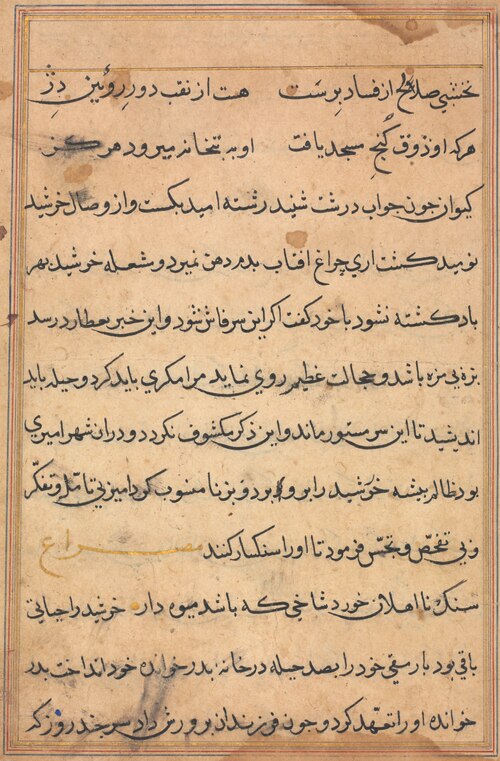 نخشبی صلاح از فساد برست هست از نقب دور روئین دژ
هرکه او ذوق کنج مسجد یافت او به بتخانه میرود هرکز
کیوان جون جواب درشت شنید رشته امید بکست و از وصال خرشید
نومید کشت اری چراغ افتاب بدم دهن نمیرد و شعله خورشید بهر
باد کشته نشود با خود کفت اکر این سر فاش شود و این خبر بعطارد رسد
بزه بی مزه باشد و خجالت عظیم روی نماید مرا مکری باید کرد و حیله باید
اندیشید تا این سر مستور ماند و این ذکر مکشوف نکردد و دران شهر امیری
بود ظالم بیشه خرشید را برو برد و بزنا منسوب کرد امیر بی تامل و تفکر
و بی تفحص و تجسس فرمود تا او را سنکسار کنند مصراع
سنک نااهلان خورد شاخی که باشد میوه دار خرشید را حیاتی
باقی بود با رمقی خود را بصد حیله در خانه بدر خوانده خود انداخت بدر
خوانده او را تعهد کرد و جون فرزندان برورش داد سر جند روز که